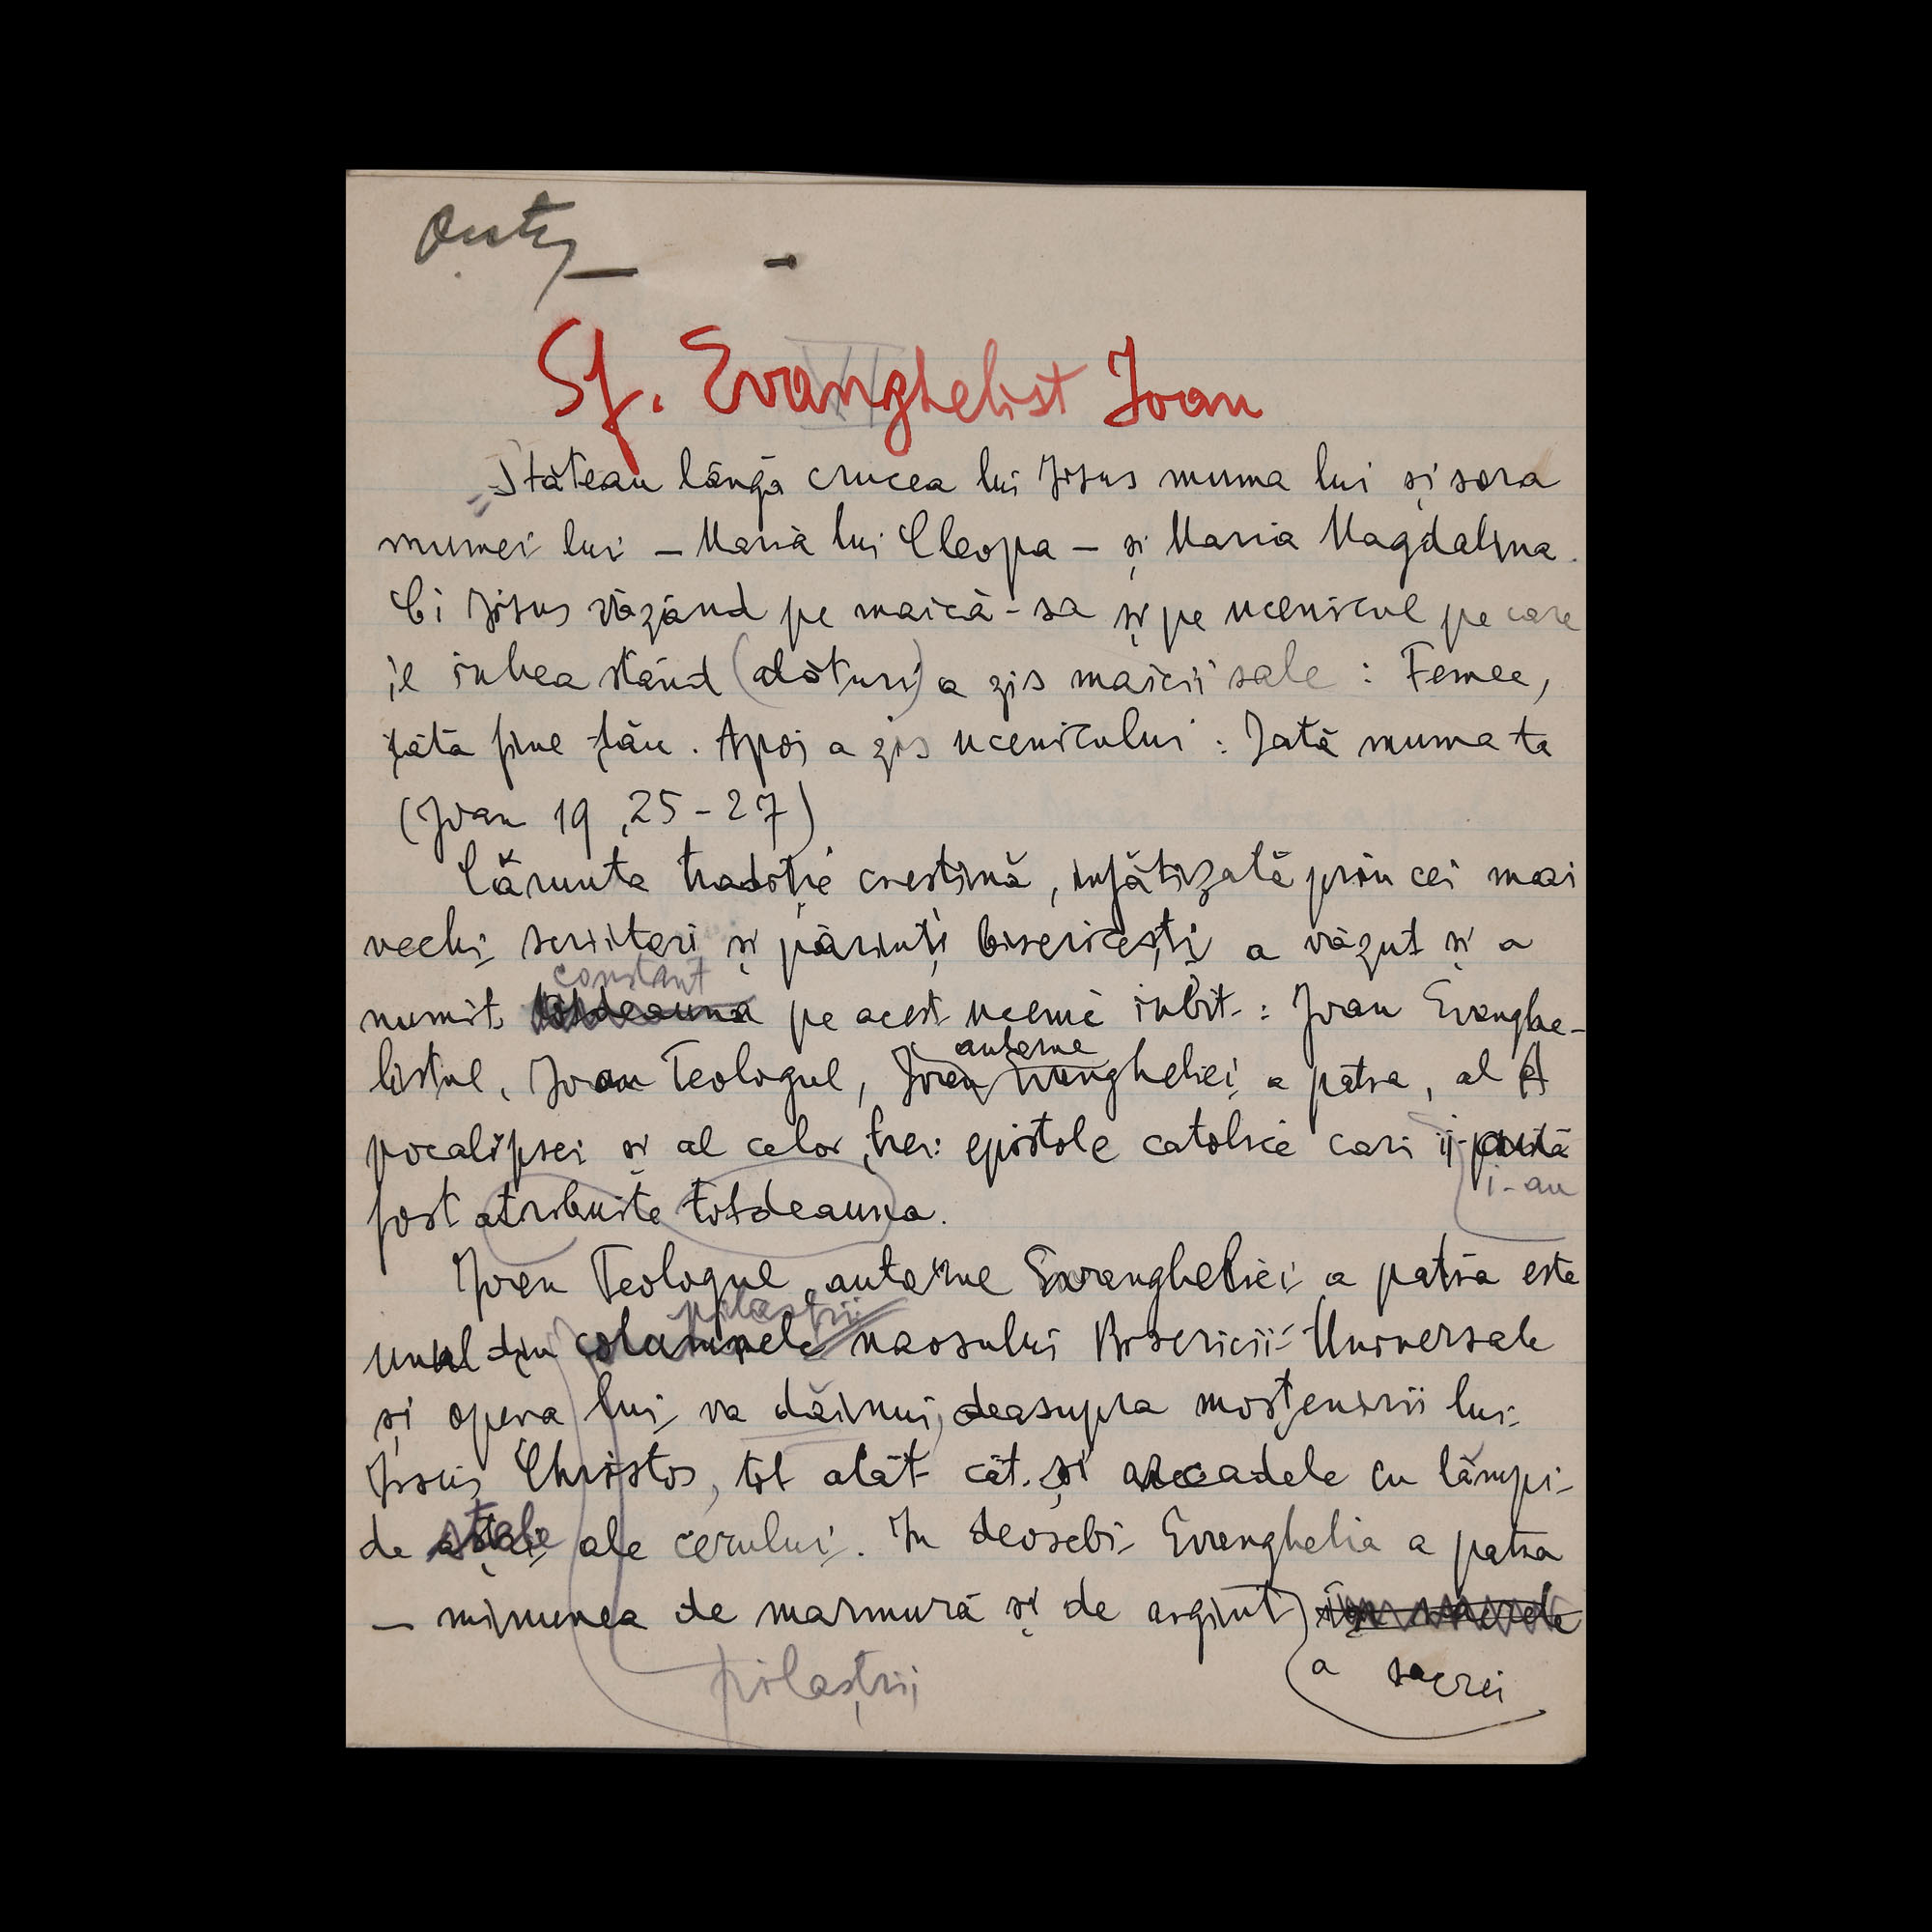 Sf. Evanghelist Ioan
Stăteau lângă crucea lui Iisus muma lui și sora
mumei lui – Maria lui Cleopa – și Maria Magdalina.
Ci Iisus văzând pe maică-sa și pe ucenicul pe care
îl iubea stând (alături) a zis maicii sale : Femee,
iată fiul tău. Apoi a zis ucenicului : Iată muma ta
(Ioan 19, 25-27)
Cărunta tradiție creștină, înfățizată prin cei mai
vechi scriitori și părinți bisericești a văzut și a
constant
numit totdeauna pe acest ucenic iubit : Ioan Evanghe-
autorul
listul, Ioan Teologul, Ioan Evangheliei a patra, al A
pocalipsei și al celor trei epistole catolice cari îi
i-au
fost atribuite totdeauna.
Ioan Teologul, autorul Evangheliei a patra este
pilaștrii
unul din coloanele naosului Bisericii Universale
și opera lui va dăinui, deasupra moștenirii lui
Iisus Christos, tot atât cât și arcadele cu lămpi
de stele ale cerului. In deosebi Evanghelia a patra
– minunea de marmură și de argint
a sacrei
pilaștrii